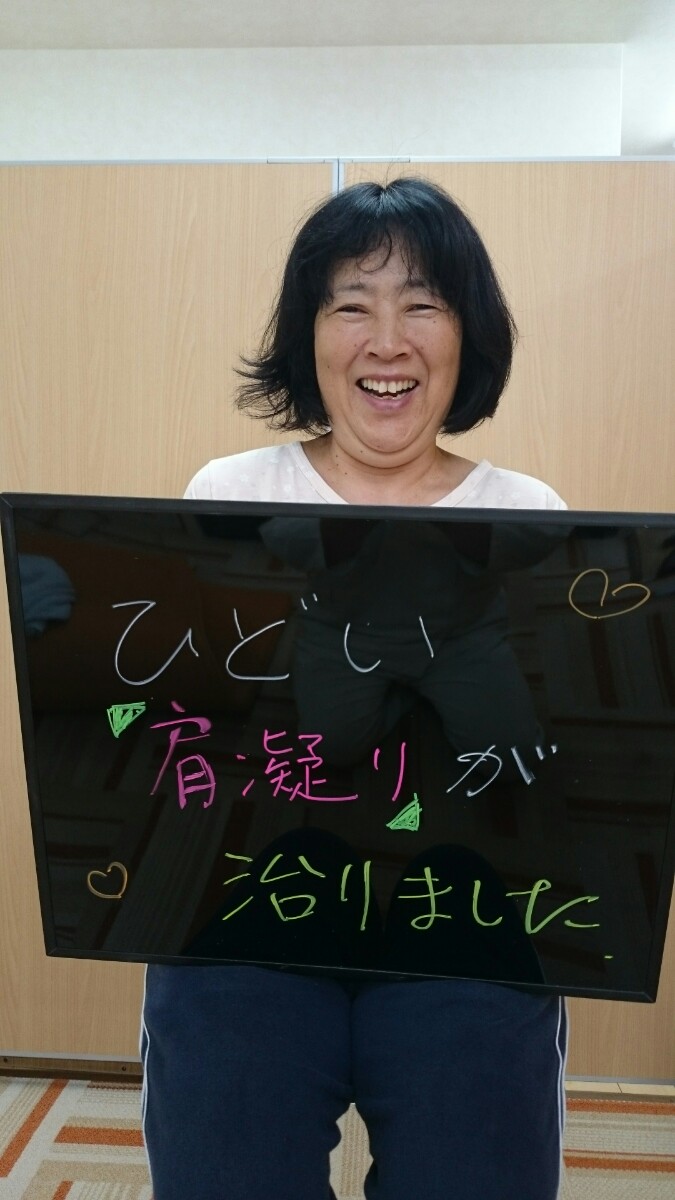 ひどい
「肩凝り」が
治りました.